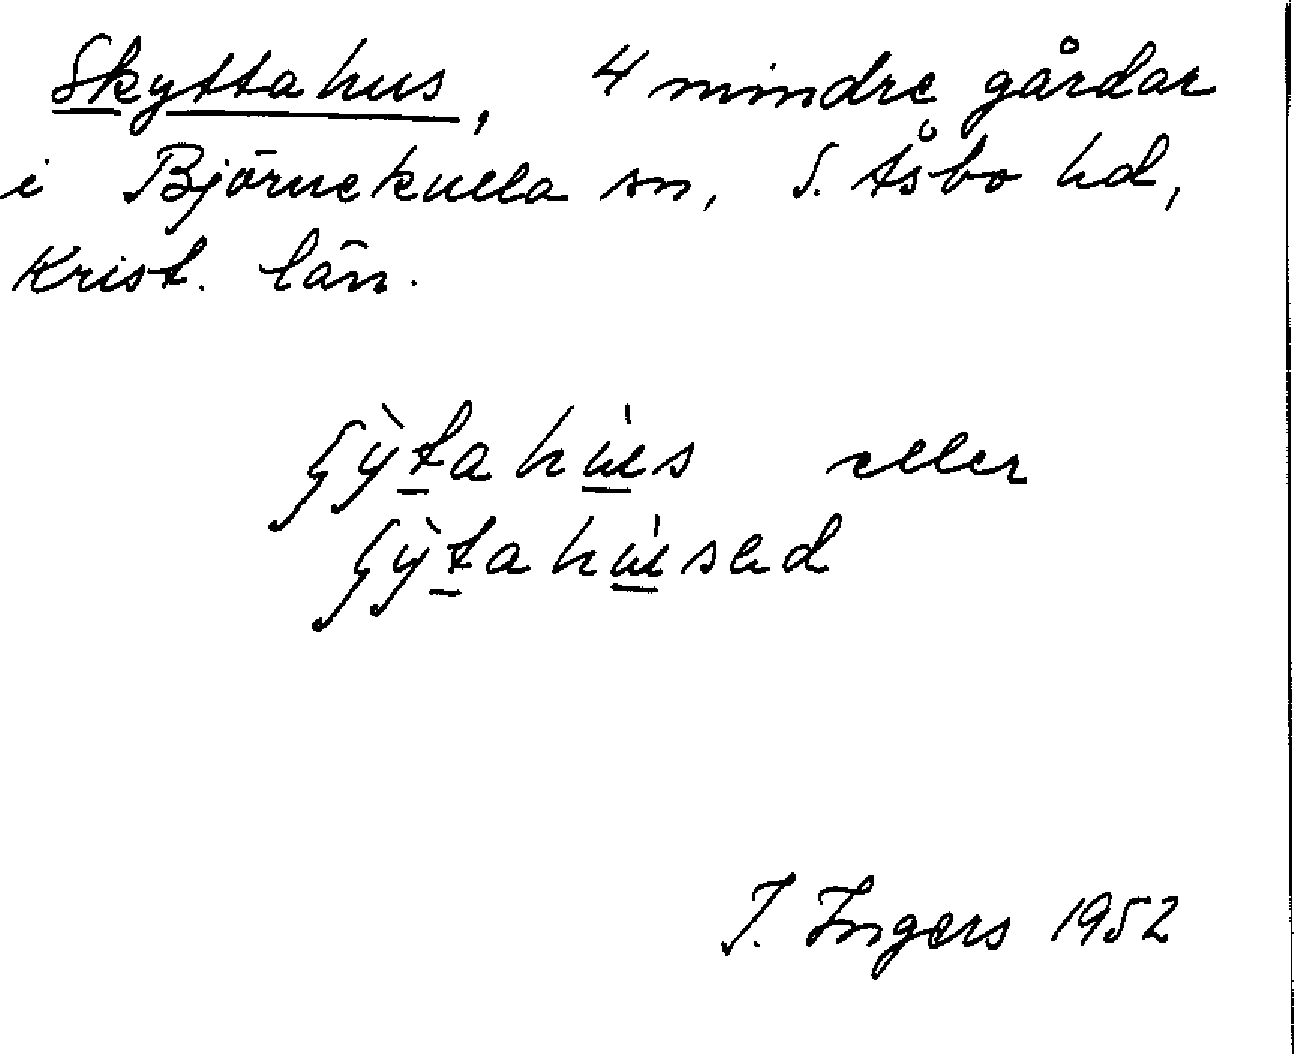 Skyttahus, 4 mindre gårdar
i Björnekulla sn, S. Åsbo hd,
Krist. län.
eller
I. Ingers 1952